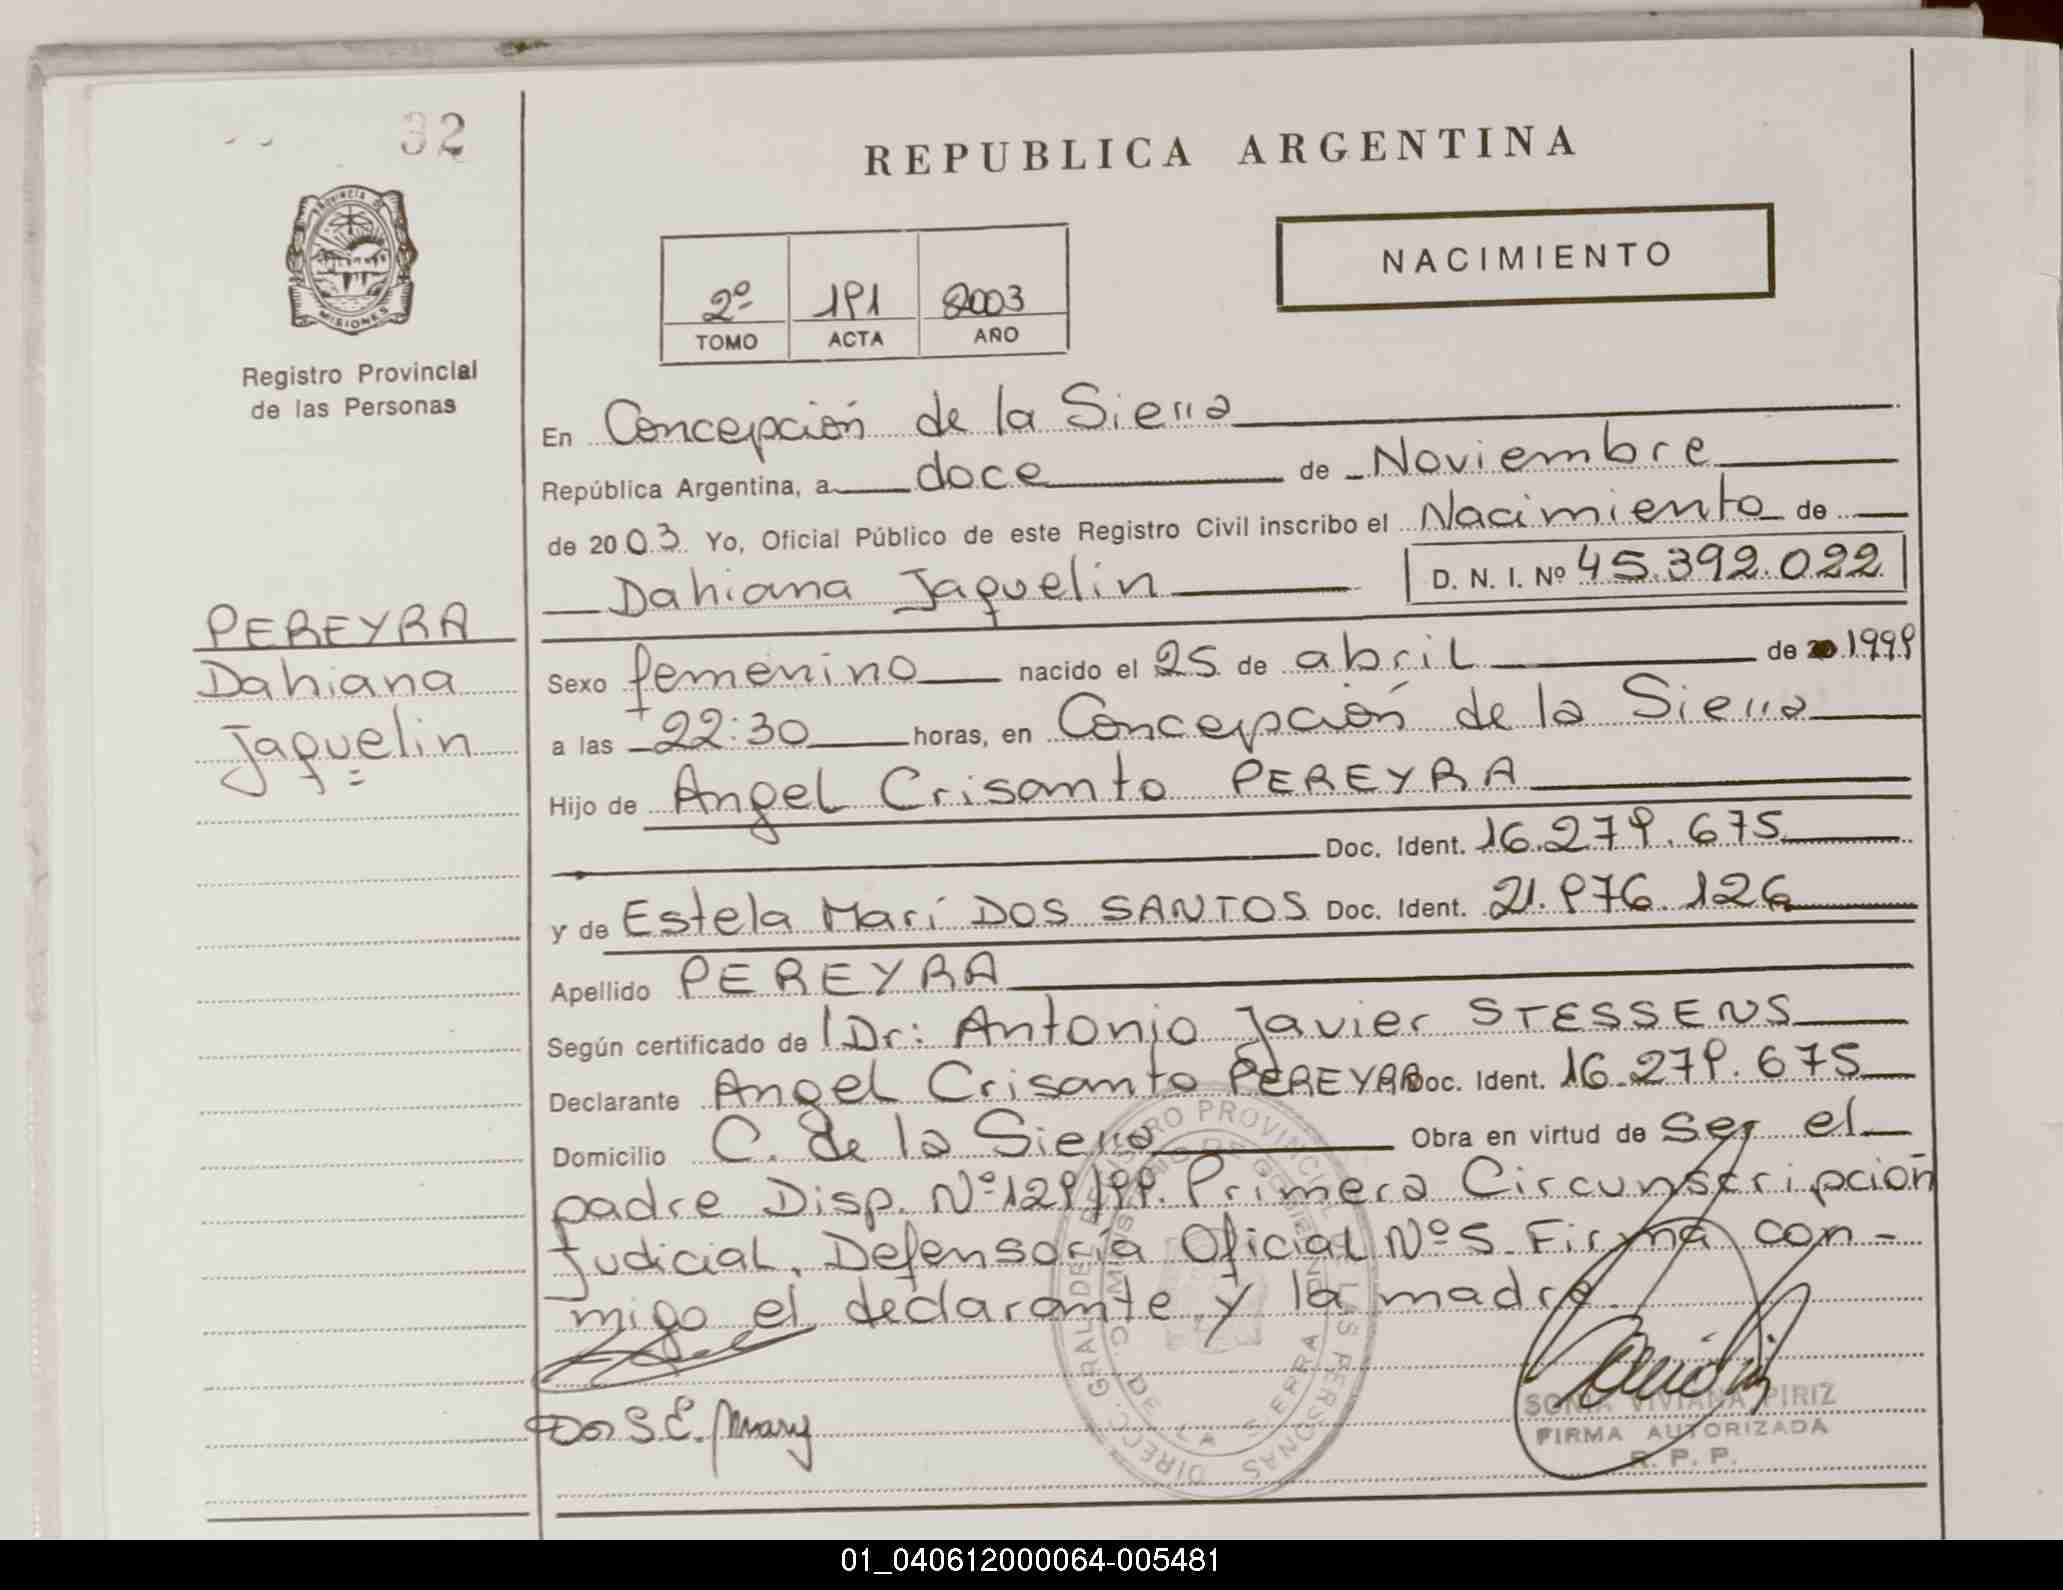 32
REPUBLICA ARGENTINA
PROVINCIA DE
MISIONES
Registro Provincial
de las Personas
NACIMIENTO
2º 191 2003
TOMO ACTA AÑO
En Concepción de la Sierra
República Argentina, a doce de Noviembre
de 2003. Yo, Oficial Público de este Registro Civil inscribo el Nacimiento de
Dahiana Jaquelin D. N. I. Nº 45.392.022
PEREYRA
Dahiana
Jaquelin
Sexo femenino nacido el 25 de abril de 1999
a las 22:30 horas, en Concepción de la Sierra
Hijo de Angel Crisanto PEREYRA
Doc. Ident. 16.279.675
y de Estela Mari DOS SANTOS Doc. Ident. 21.976.126
Apellido PEREYRA
Según certificado de Dr: Antonio Javier STESSENS
Declarante Angel Crisanto PEREYRA Doc. Ident. 16.279.675
Domicilio C. de la Sierra Obra en virtud de ser el
padre Disp. Nº 129/99. Primera Circunscripción
Judicial, Defensoría Oficial Nº 5. Firma con-
migo el declarante y la madre.
Dos S.E. Mary
DIREC. GRAL DEL REGISTRO PROVINCIAL DE LAS PERSONAS
MINISTERIO DE GOBIERNO
C. DE LA SIERRA
SONIA VIVIANA PIRIZ
FIRMA AUTORIZADA
R. P. P.
01_040612000064-005481